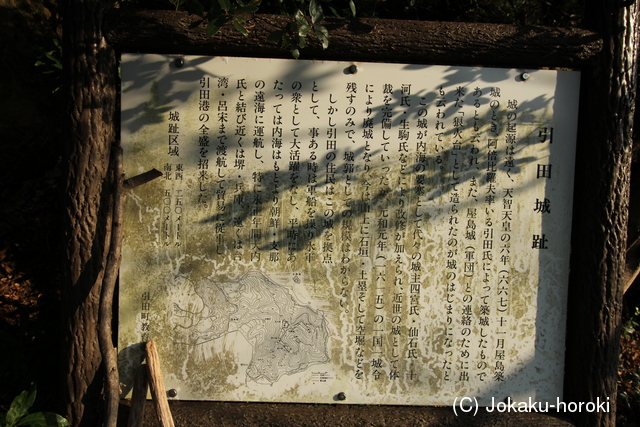 引田城趾
城の起源は遠く、天智天皇の六年(六六七)十一月屋島築
城のとき、阿倍比羅夫率いる引田氏によって築城したもので
あるともいわれ、また、屋島城(軍団)との連絡のために出
来た「狼火台」として造られたのが城のはじまりになったと
も云われている。
この城が内海の要衝として代々の城主四宮氏・仙石氏・十
河氏・生駒氏などにより改修が加えられ、近世の城として体
裁を完備していったが、元和元年(一六一五)の一国一城令
により廃城となり、今は山上に石垣、土塁そして空堀などを
残すのみで、城郭としての規模はわからない。
しかし引田の住民はこの城を拠点
として、事ある時は軍船を操り水軍
の衆として大活躍をなし、平時にあ
たっては内海はもとより朝鮮・支那
の遠海に運航し、特に永
氏と結び近くは堺・兵庫、遠くは台
湾・呂宋まで渡航して貿易に従事し
引田港の全盛を招来した。
城趾区域
東西 二五〇メートル
南北 五〇〇メートル
引田町教
(C) Jokaku-horoki